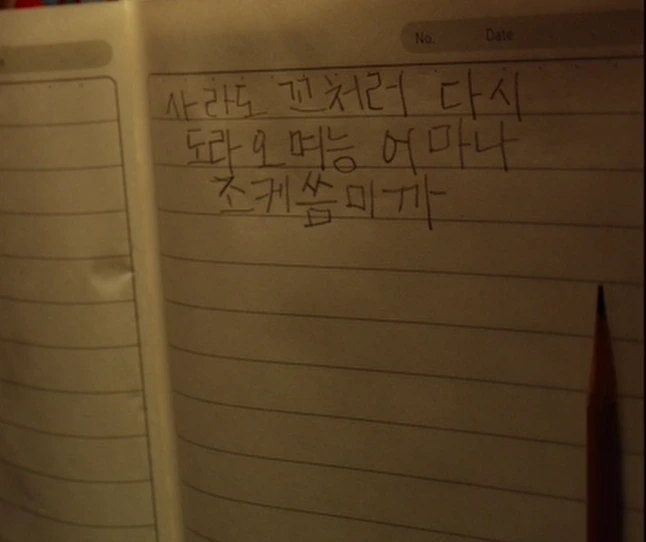 No. Date
사라도 꼰처러 다시
도라오며능 어마나
조케씀미까